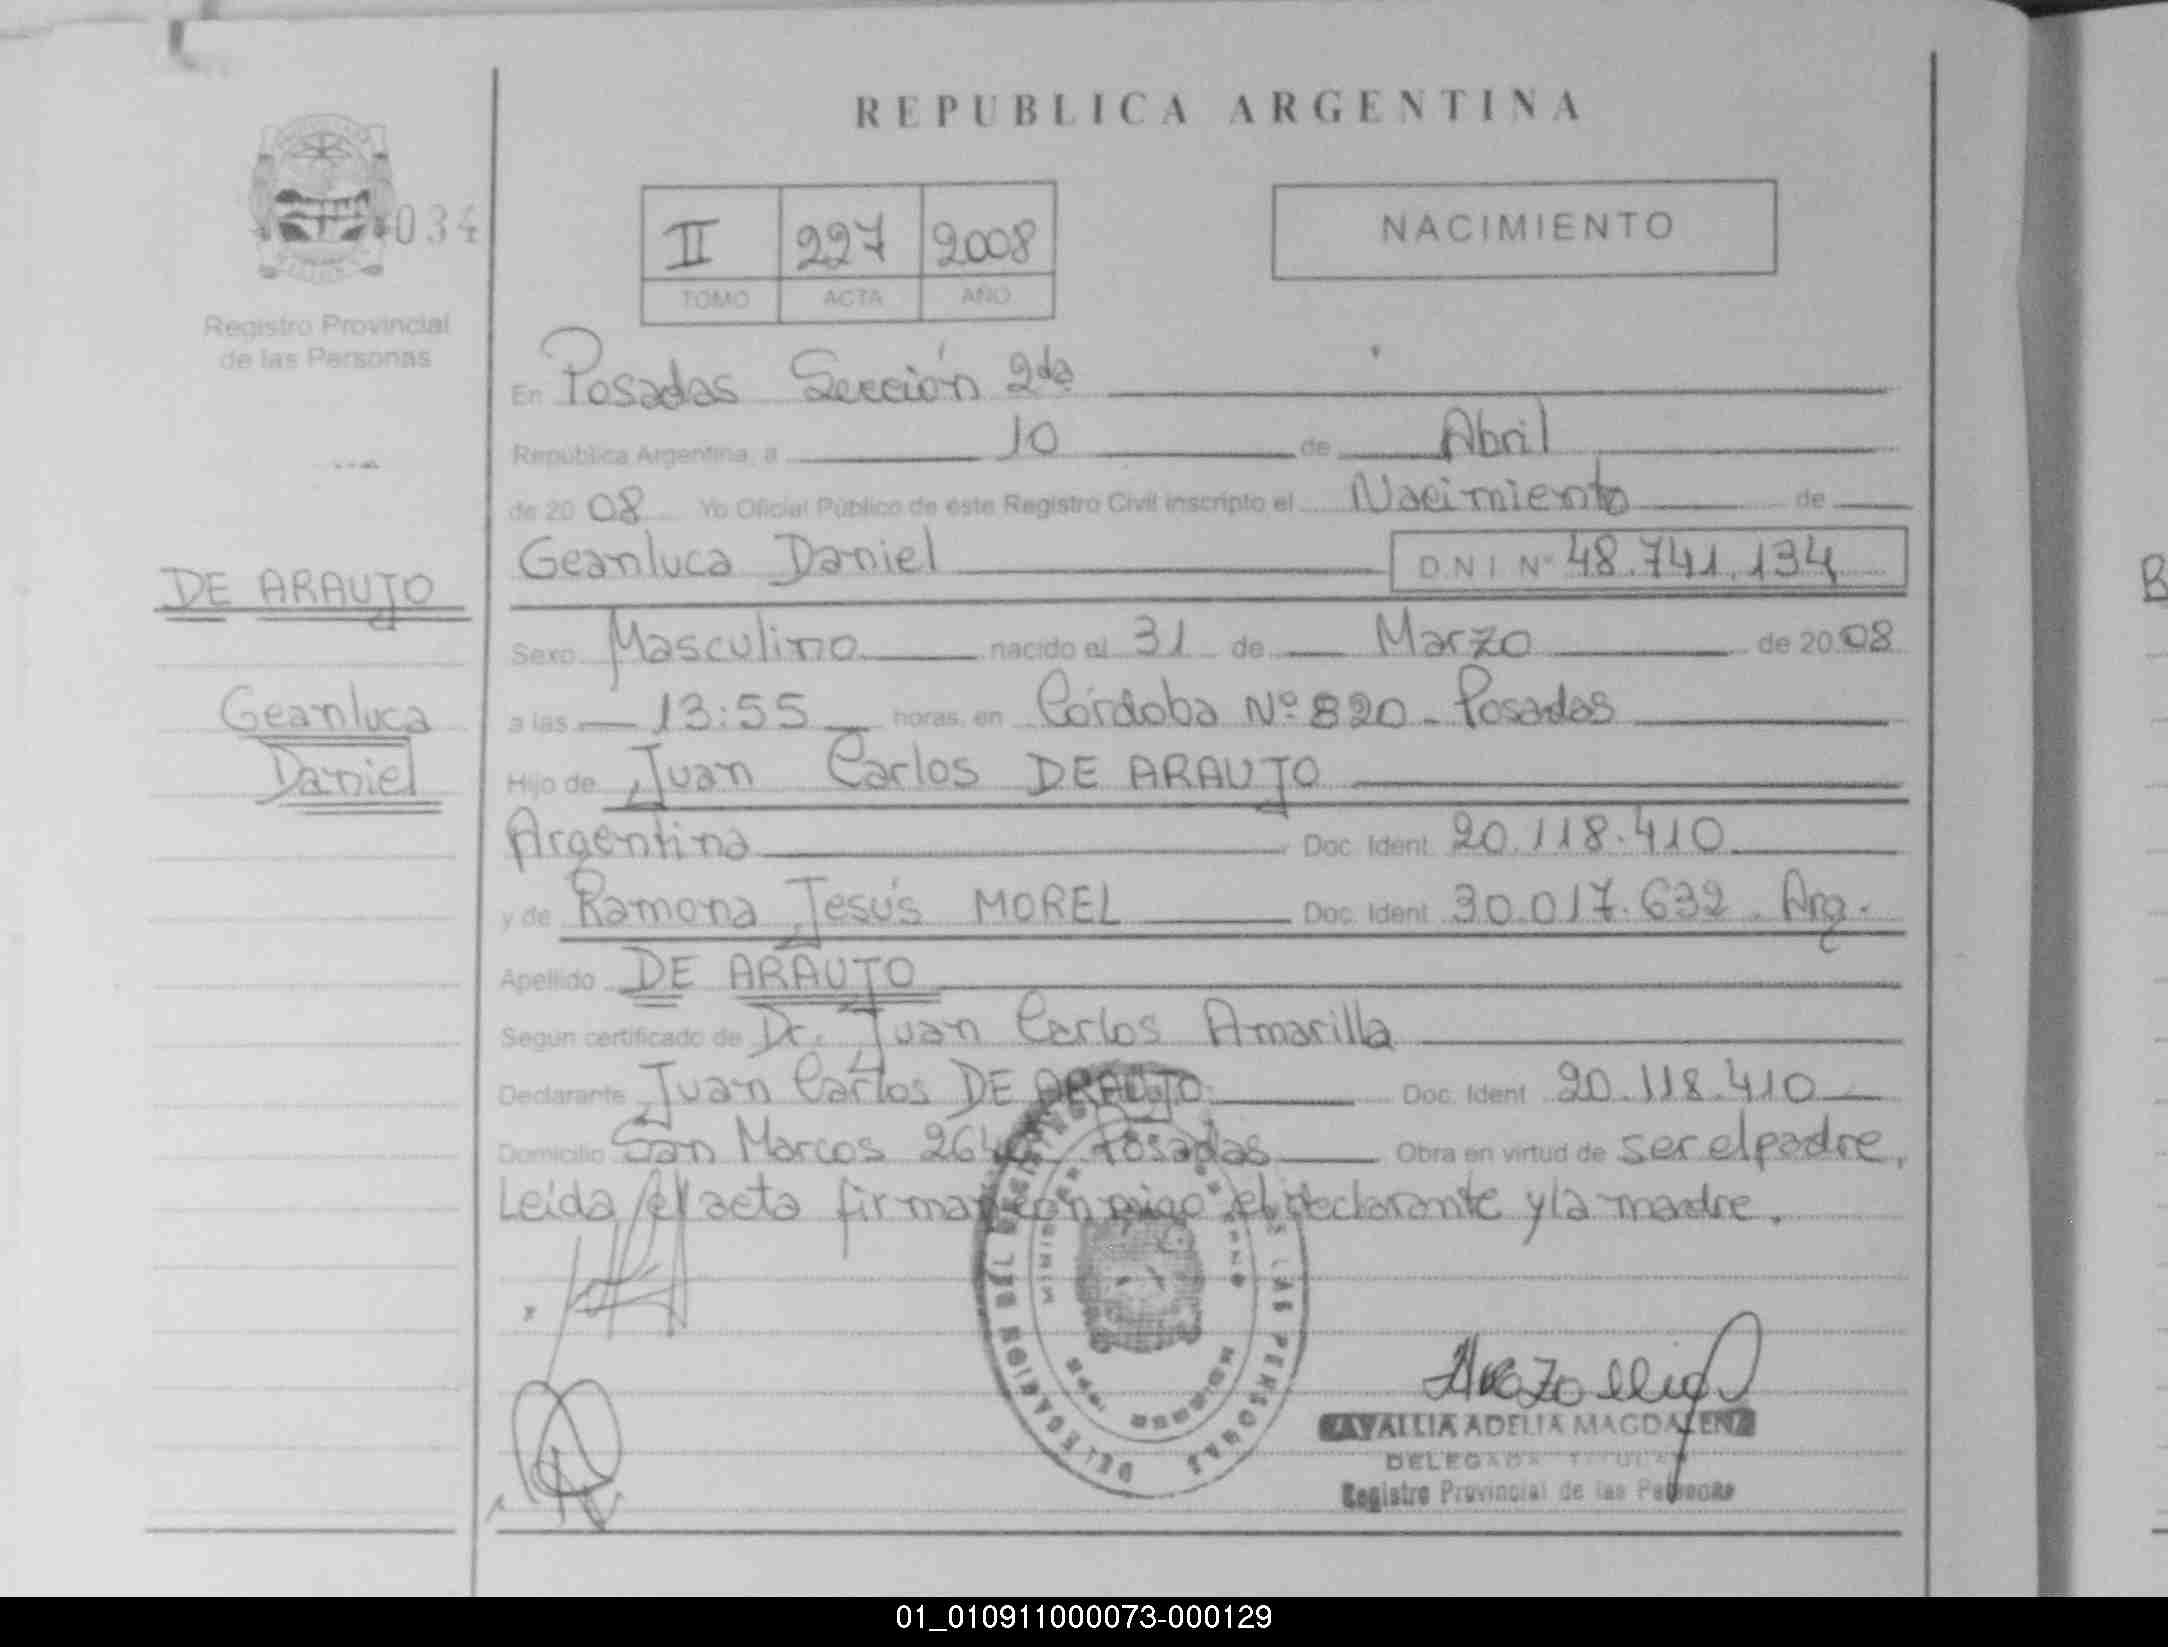 REPUBLICA ARGENTINA
034
Registro Provincial
de las Personas
II 227 2008
TOMO ACTA AÑO
NACIMIENTO
En Posadas Sección 2da
República Argentina, a 10 de Abril
de 2008 Yo Oficial Público de este Registro Civil inscripto el Nacimiento de
Geanluca Daniel D.N.I Nº 48.741.134
DE ARAUJO
Geanluca
Daniel
Sexo Masculino nacido el 31 de Marzo de 2008
a las 13:55 horas, en Córdoba Nº 820 - Posadas
Hijo de Juan Carlos DE ARAUJO
Argentina Doc. Ident. 20.118.410
y de Ramona Jesús MOREL Doc. Ident. 30.017.632. Arg.
Apellido DE ARAUJO
Según certificado de Dr. Juan Carlos Amarilla
Declarante Juan Carlos DE ARAUJO Doc. Ident. 20.118.410
Domicilio San Marcos Posadas Obra en virtud de ser el padre,
Leída el acta firman conmigo el declarante y la madre.
DELEGACION DEL REGISTRO DE LAS PERSONAS
CAVALLIA ADELIA MAGDALENA
DELEGADA TITULAR
Registro Provincial de las Personas
B
01_010911000073-000129